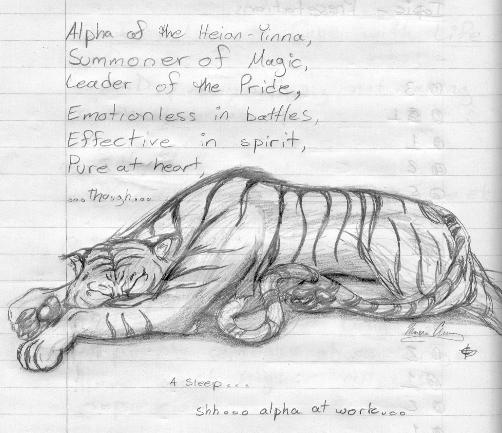 Alpha of the Heian-Yinna,
Summoner of Magic,
Leader of the Pride,
Emotionless in battles,
Effective in spirit,
Pure at heart,
...though...
A sleep...
shh... alpha at work...